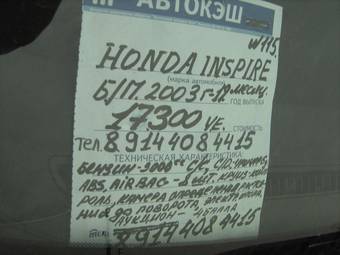 АВТОКЭШ
W115,
HONDA INSPIRE
(марка автомобиля)
Б/П. 2003 г-12 месяц.
ГОД ВЫПУСКА
17.300 УЕ. СТОИМОСТЬ
ТЕЛ. 8 914 408 44 15
ТЕХНИЧЕСКАЯ ХАРАКТЕРИСТИКА:
БЕНЗИН-3000
ABS, AIRBAG КРУИЗ
РОЛЬ, КАМЕРА ОПРЕДЕЛЕНИЯ
НИЯ ДО ПОВОРОТА,
АУКЦИОН - 4 БАЛЛА
8914 408 4415